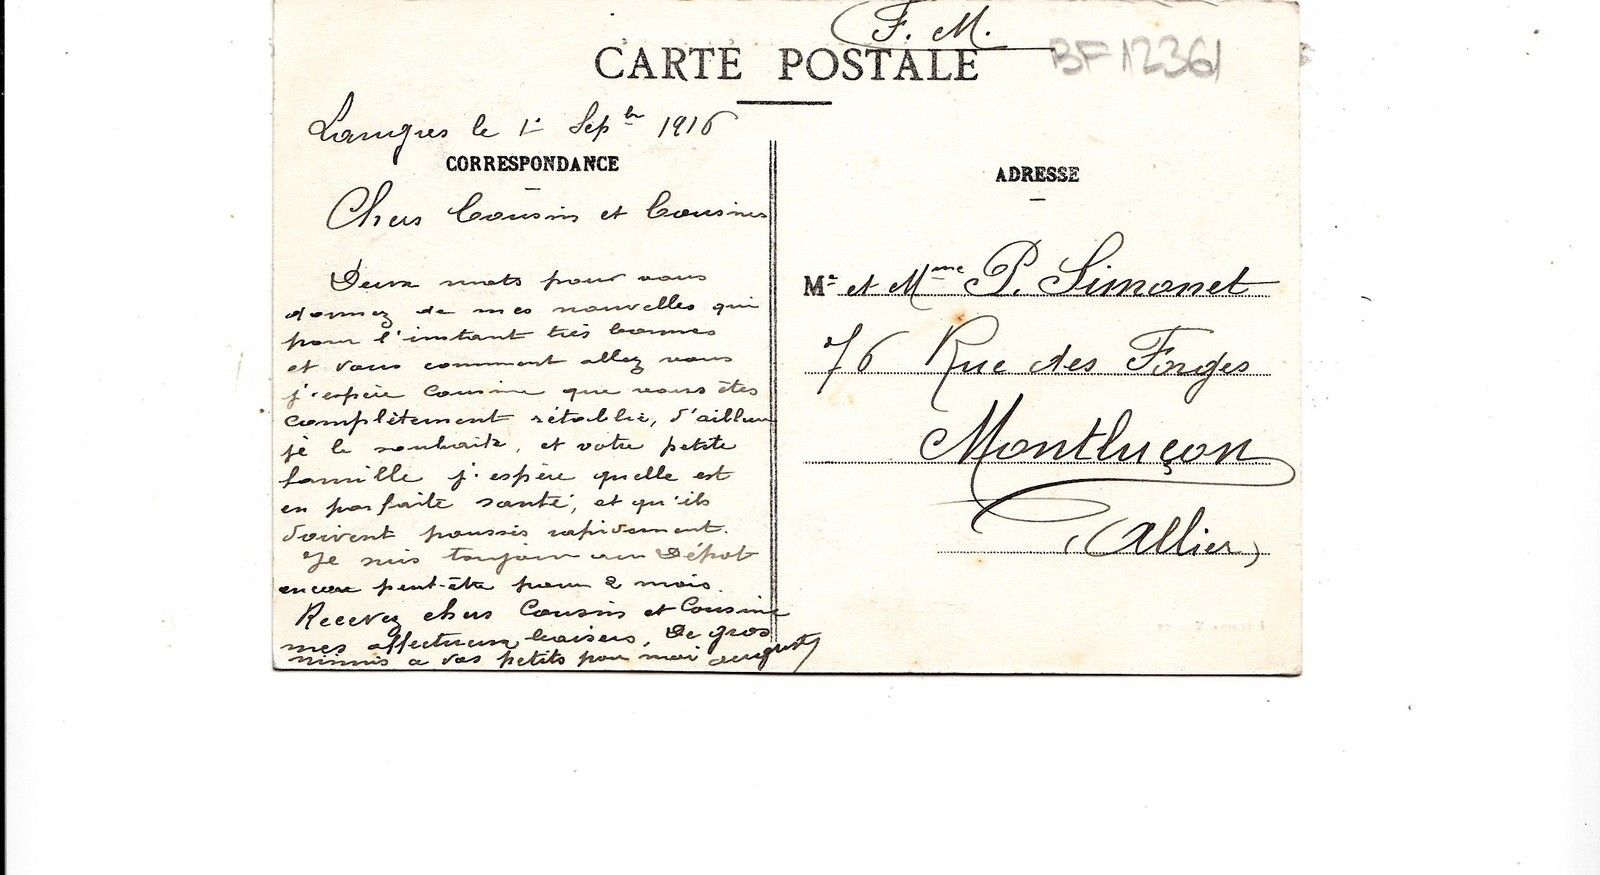 F. M.
CARTE POSTALE
BF12361
Langres le 1er Sepbre 1916
CORRESPONDANCE
Chers Cousins et Cousines
Deux mots pour vous
donnez de mes nouvelles qui
pour l'instant très bonnes
et vous comment allez vous
j'espère Cousine que vous êtes
complètement rétablie, d'ailleurs
je le souhaite, et votre petite
famille j'espère quelle est
en parfaite santé, et qu'ils
doivent poussés rapidement.
Je suis toujours au Dépôt
encore peut-être pour 2 mois.
Recevez chers Cousins et Cousine
mes affectueux baisers, De gros
mimis a vos petits pour moi Auguste
ADRESSE
Mr et Mme P. Simonet
76 Rue des Forges
Montluçon
(Allier)